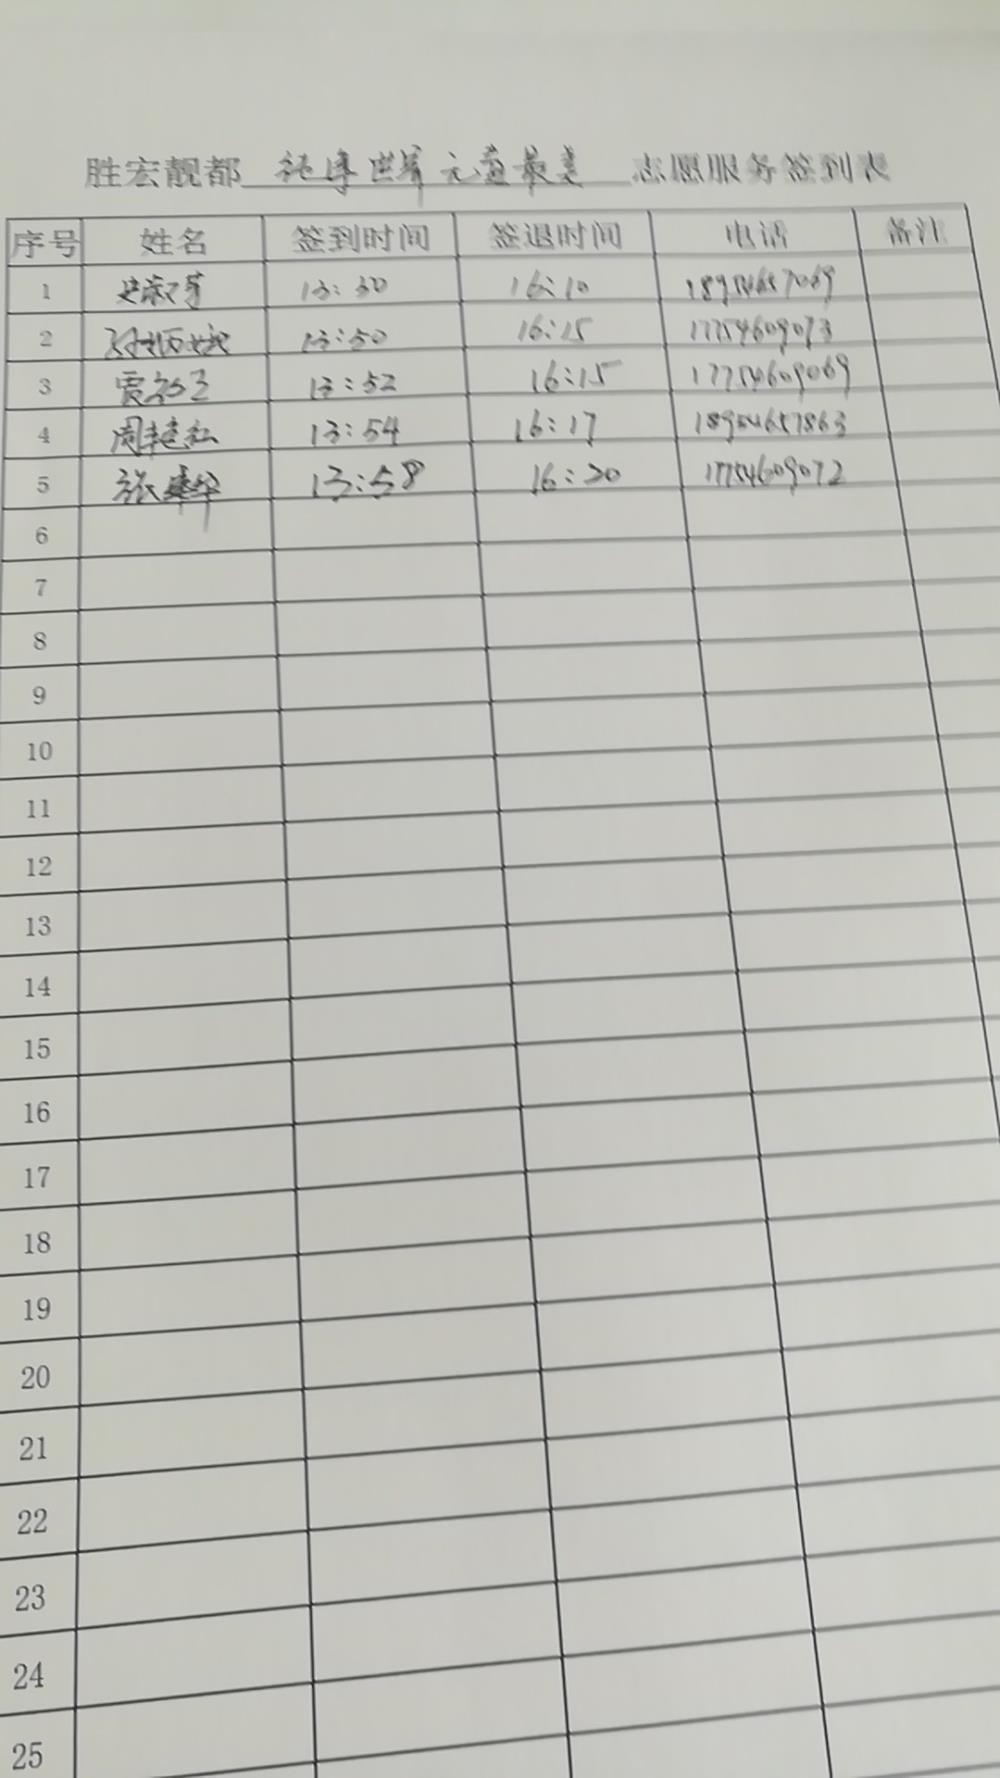 胜宏靓都 志愿服务签到表
序号 姓名 签到时间 签退时间 电话 备注
1 13:30 16:10 18954657069
2 13:50 16:15 17754609073
3 13:52 16:15 17754609069
4 周 13:54 16:17 18954657863
5 张 13:58 16:20 17754609072
6
7
8
9
10
11
12
13
14
15
16
17
18
19
20
21
22
23
24
25